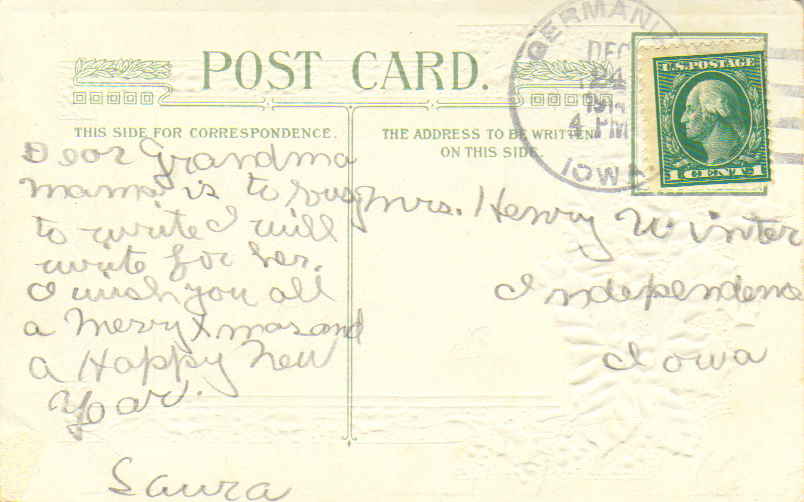 POST CARD.
THIS SIDE FOR CORRESPONDENCE.
THE ADDRESS TO BE WRITTEN
ON THIS SIDE.
GERMANI
DEC
24
4 PM
IOWA
U.S. POSTAGE
1 CENT 1
Dear Grandma
Mama is to busy
to write I will
write for her.
I wish you all
a Merry Xmas and
a Happy New
Year.
Laura
Mrs. Henry Winter
Independence
Iowa